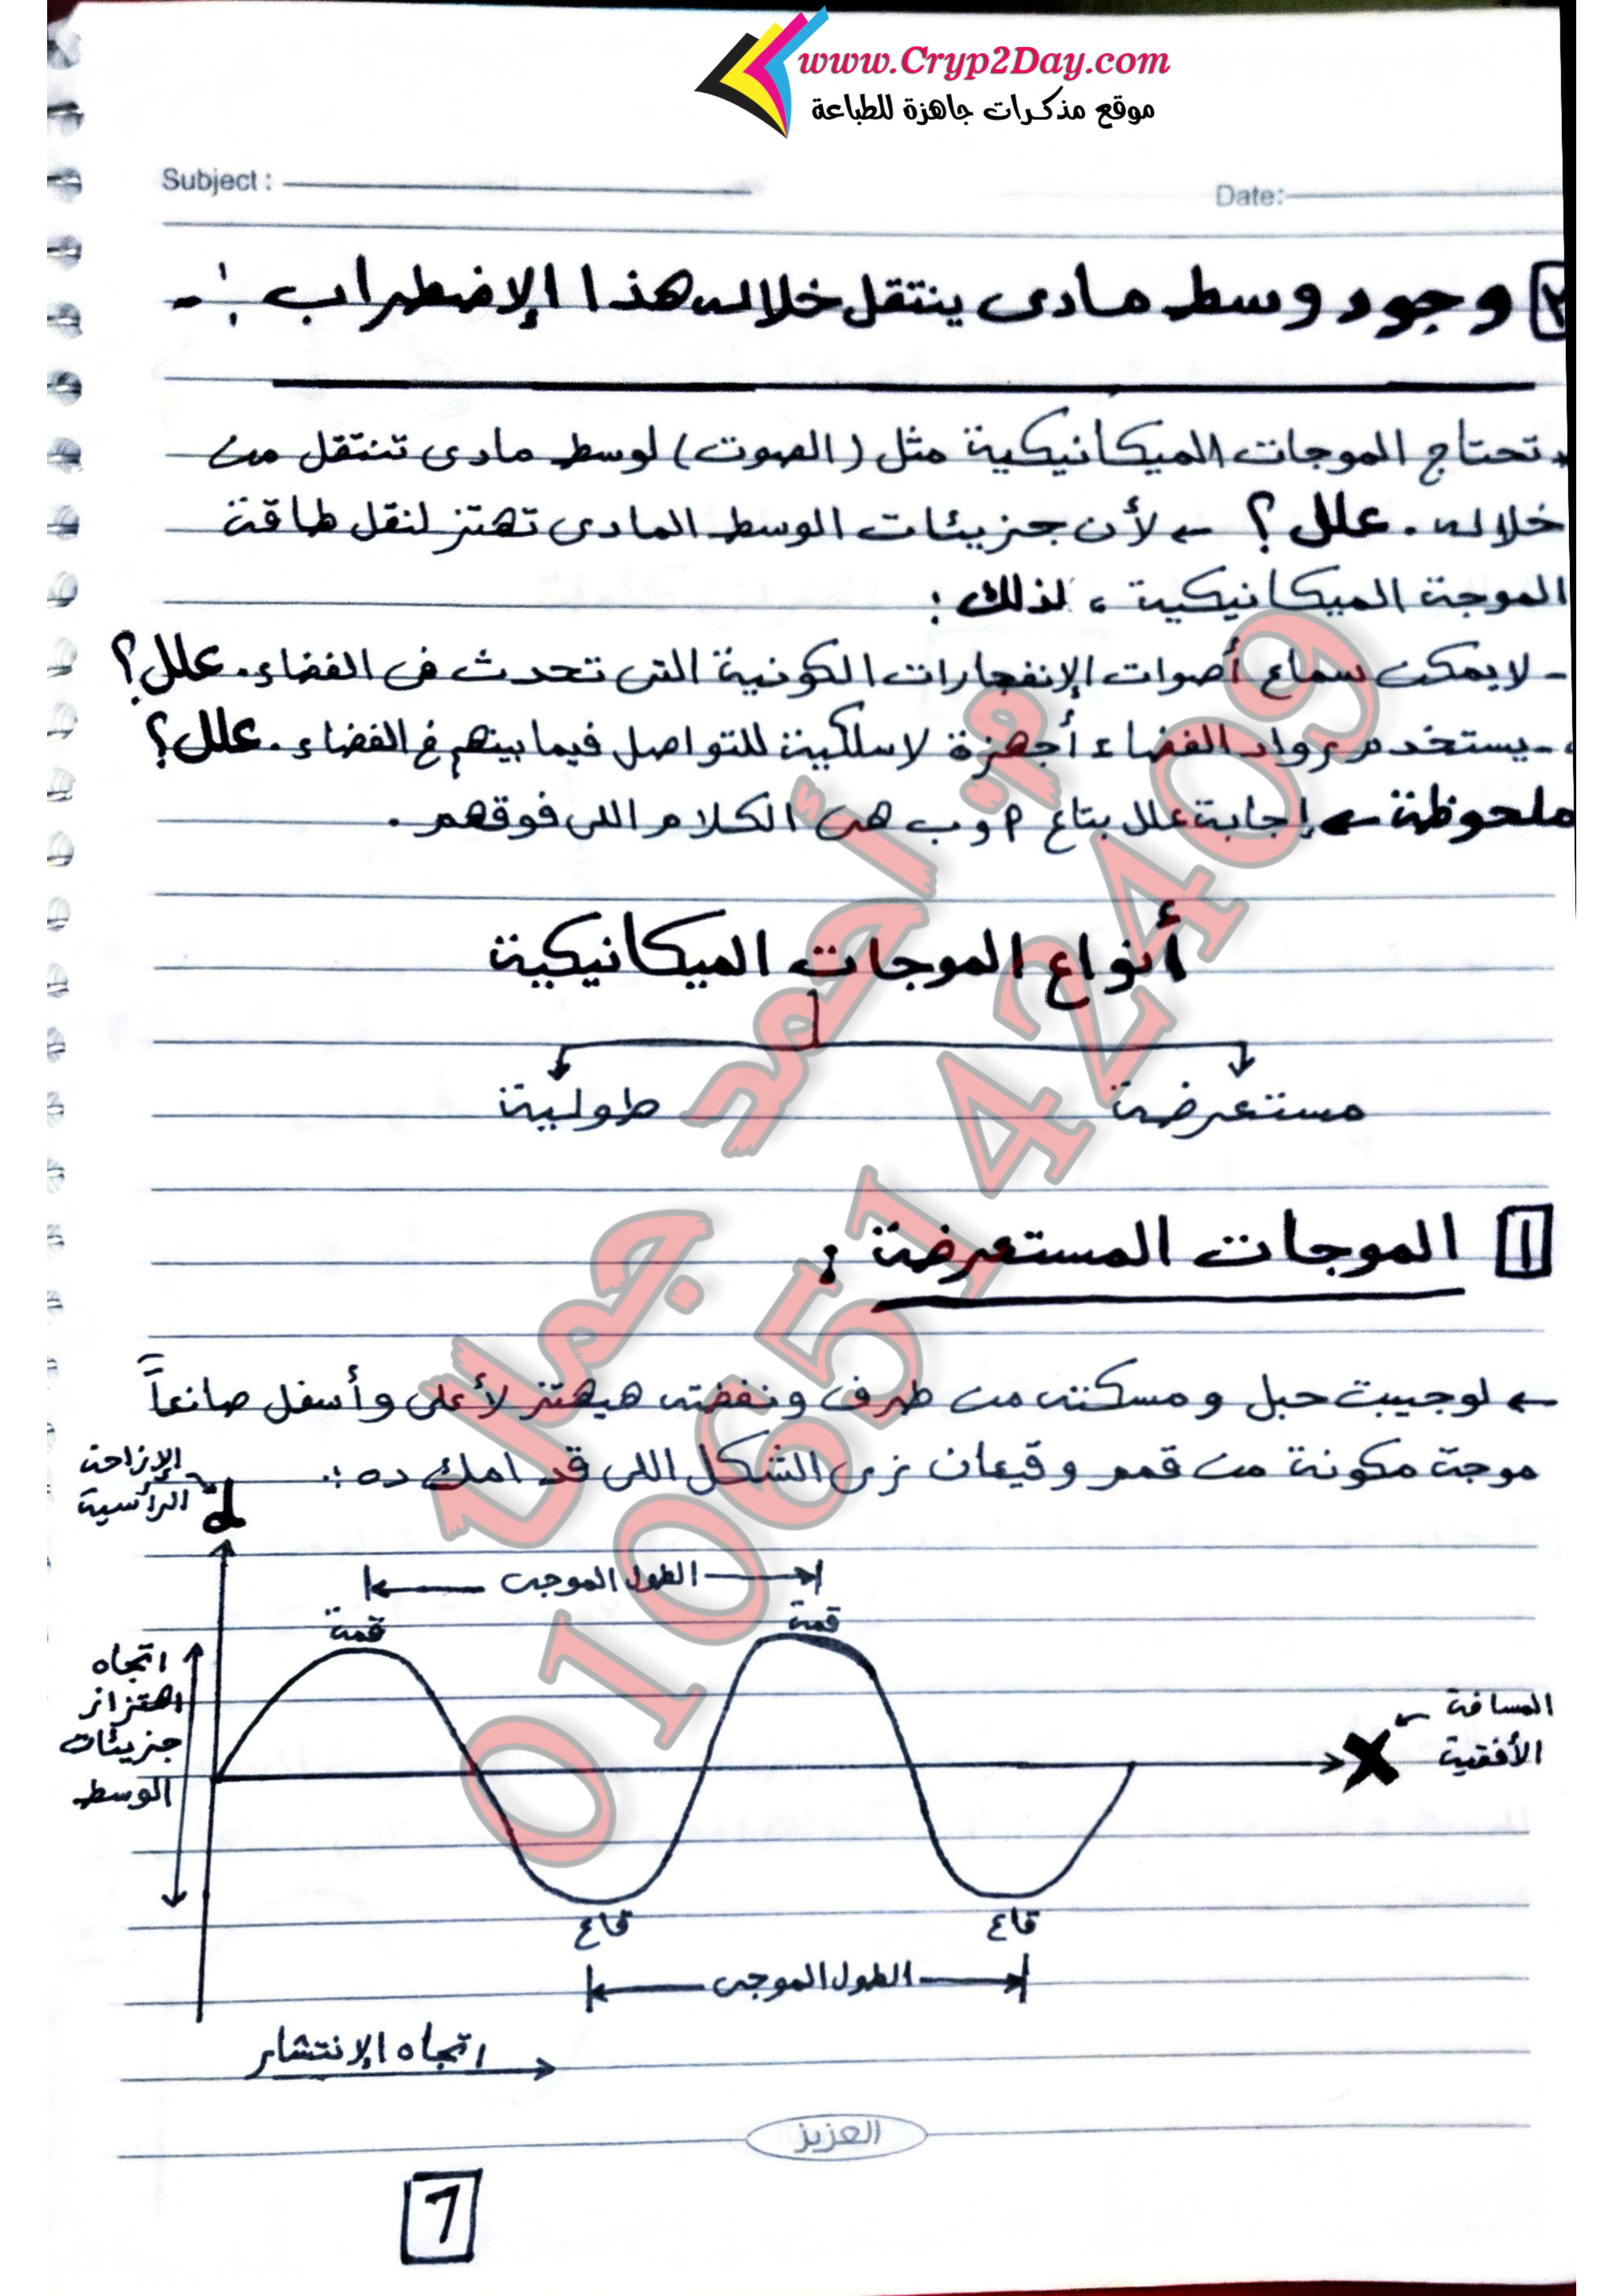 www.Cryp2Day.com
موقع مذكرات جاهزة للطباعة
Subject :
Date:
٢ وجود وسط مادى ينتقل خلاله هذا الإضطراب :-
تحتاج الموجات الميكانيكية مثل (الصوت) لوسط مادى تنتقل من
خلاله . علل ؟ ← لأن جزيئات الوسط المادى تهتز لنقل طاقة
الموجة الميكانيكية ، لذلك :
- لا يمكن سماع أصوات الإنفجارات الكونية التى تحدث فى الفضاء . علل ؟
- يستخدم رواد الفضاء أجهزة لاسلكية للتواصل فيما بينهم فى الفضاء . علل ؟
ملحوظة ← إجابة علل بتاع أ و ب هى الكلام اللى فوقهم .
أنواع الموجات الميكانيكية
مستعرضة طولية
١ الموجات المستعرضة :
← لو جيبت حبل ومسكته من طرف ونفضته هيهتز لأعلى وأسفل صانعاً
موجة مكونة من قمم وقيعان زى الشكل اللى قدامك ده :.
الإزاحة
الرأسية
d
الطول الموجى
قمة قمة
اتجاه
اهتزاز
جزيئات
الوسط
المسافة
الأفقية
X
قاع قاع
الطول الموجى
اتجاه الإنتشار
العزيز
7
م. أحمد جمال
01065142409